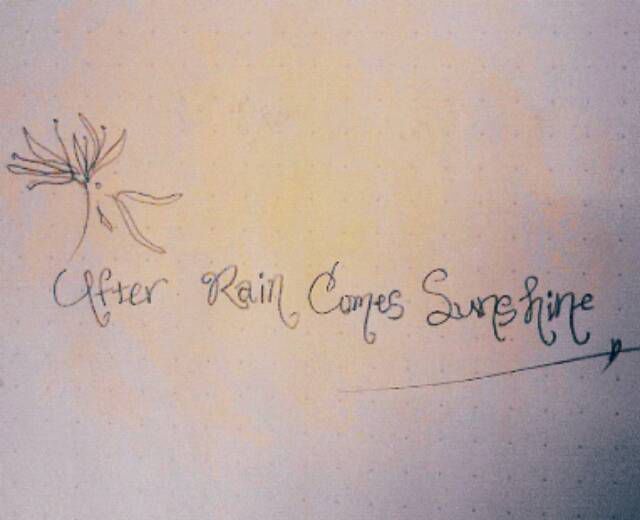 After Rain Comes Sunshine